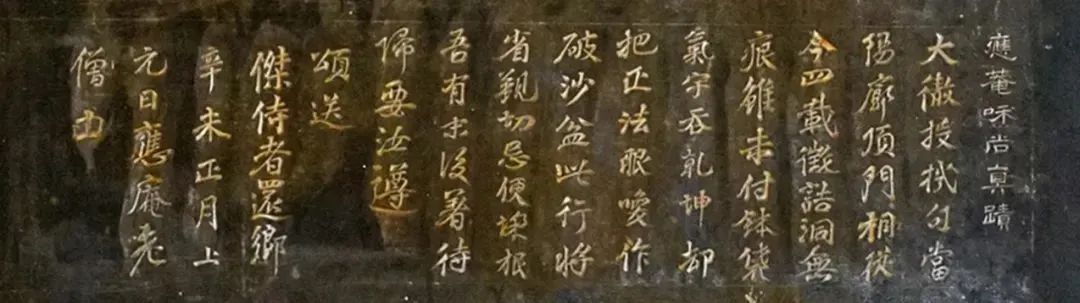 應菴咊尚真蹟
大徹投機句當
陽廓頂門相從
今四載徵詰洞無
痕雖未付鉢袋
氣宇吞乾坤却
把正法眼喚作
破沙盆此行將
省覲切忌便垛根
吾有末後著待
歸要汝遵
頌送
傑侍者還鄉
辛未正月上
元日應庵老
僧